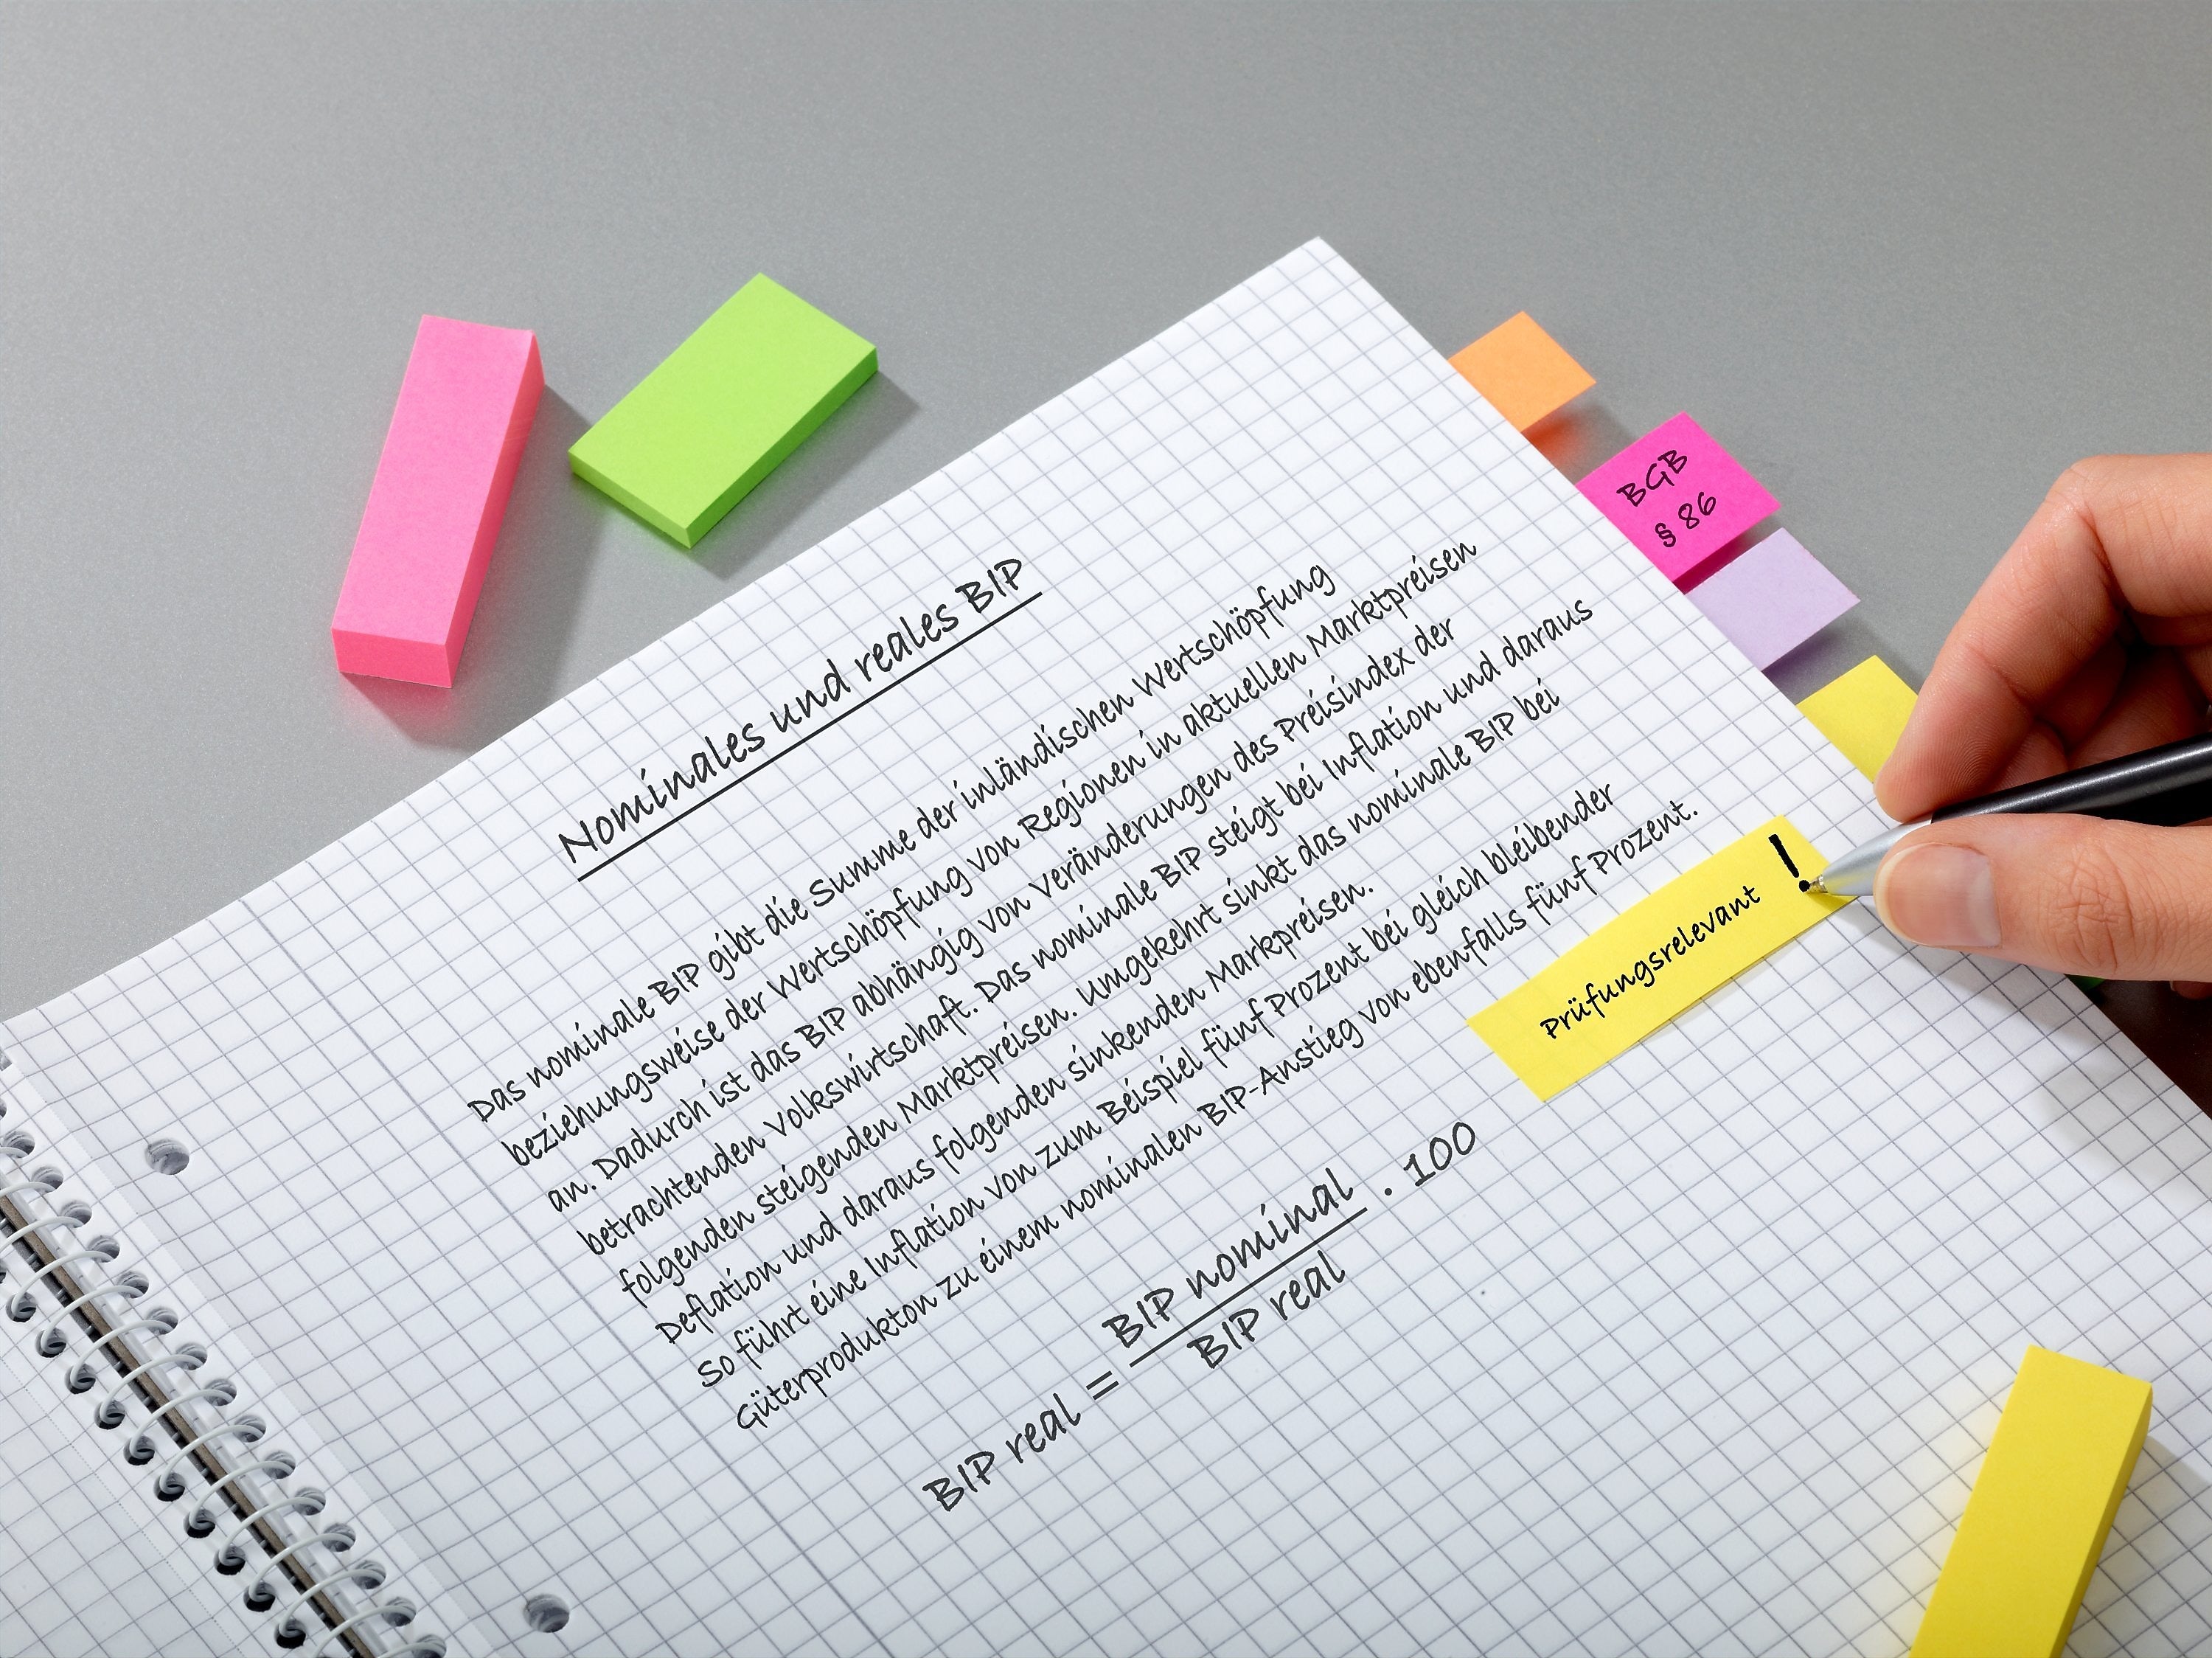 Nominales und reales BIP
Das nominale BIP gibt die Summe der inländischen Wertschöpfung
beziehungsweise der Wertschöpfung von Regionen in aktuellen Marktpreisen
an. Dadurch ist das BIP abhängig von Veränderungen des Preisindex der
betrachtenden Volkswirtschaft. Das nominale BIP steigt bei Inflation und daraus
folgenden steigenden Marktpreisen. Umgekehrt sinkt das nominale BIP bei
Deflation und daraus folgenden sinkenden Markpreisen.
So führt eine Inflation von zum Beispiel fünf Prozent bei gleich bleibender
Güterprodukton zu einem nominalen BIP-Anstieg von ebenfalls fünf Prozent.
BIP real = BIP nominal / BIP real . 100
Prüfungsrelevant !
BGB
§ 86